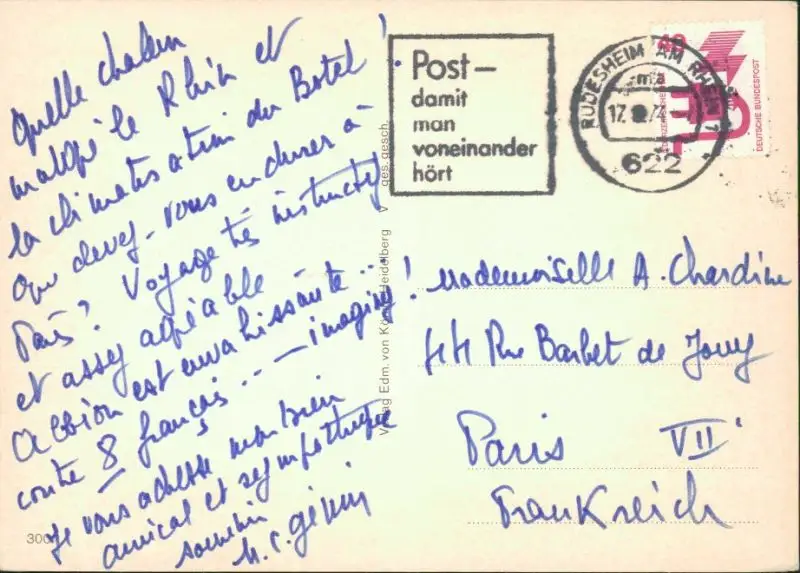 Quelle chaleur
malgré le Rhin et
la climatisation du Botel !
Que devez-vous endurer à
Paris ? Voyage très instructif
et assez agréable -
Albion est envahissante...
contre 8 français... - imaginez !
Je vous adresse mon bien
amical et sympathique
souvenir
M. C. Génin
300
Verlag Edm. von König Heidelberg
ges. gesch.
Post –
damit
man
voneinander
hört
RÜDESHEIM AM RHEIN 1
17. 74
622
40
DEUTSCHE BUNDESPOST
Mademoiselle A. Chardine
44 Rue Barbet de Jouy
Paris VII
Frankreich